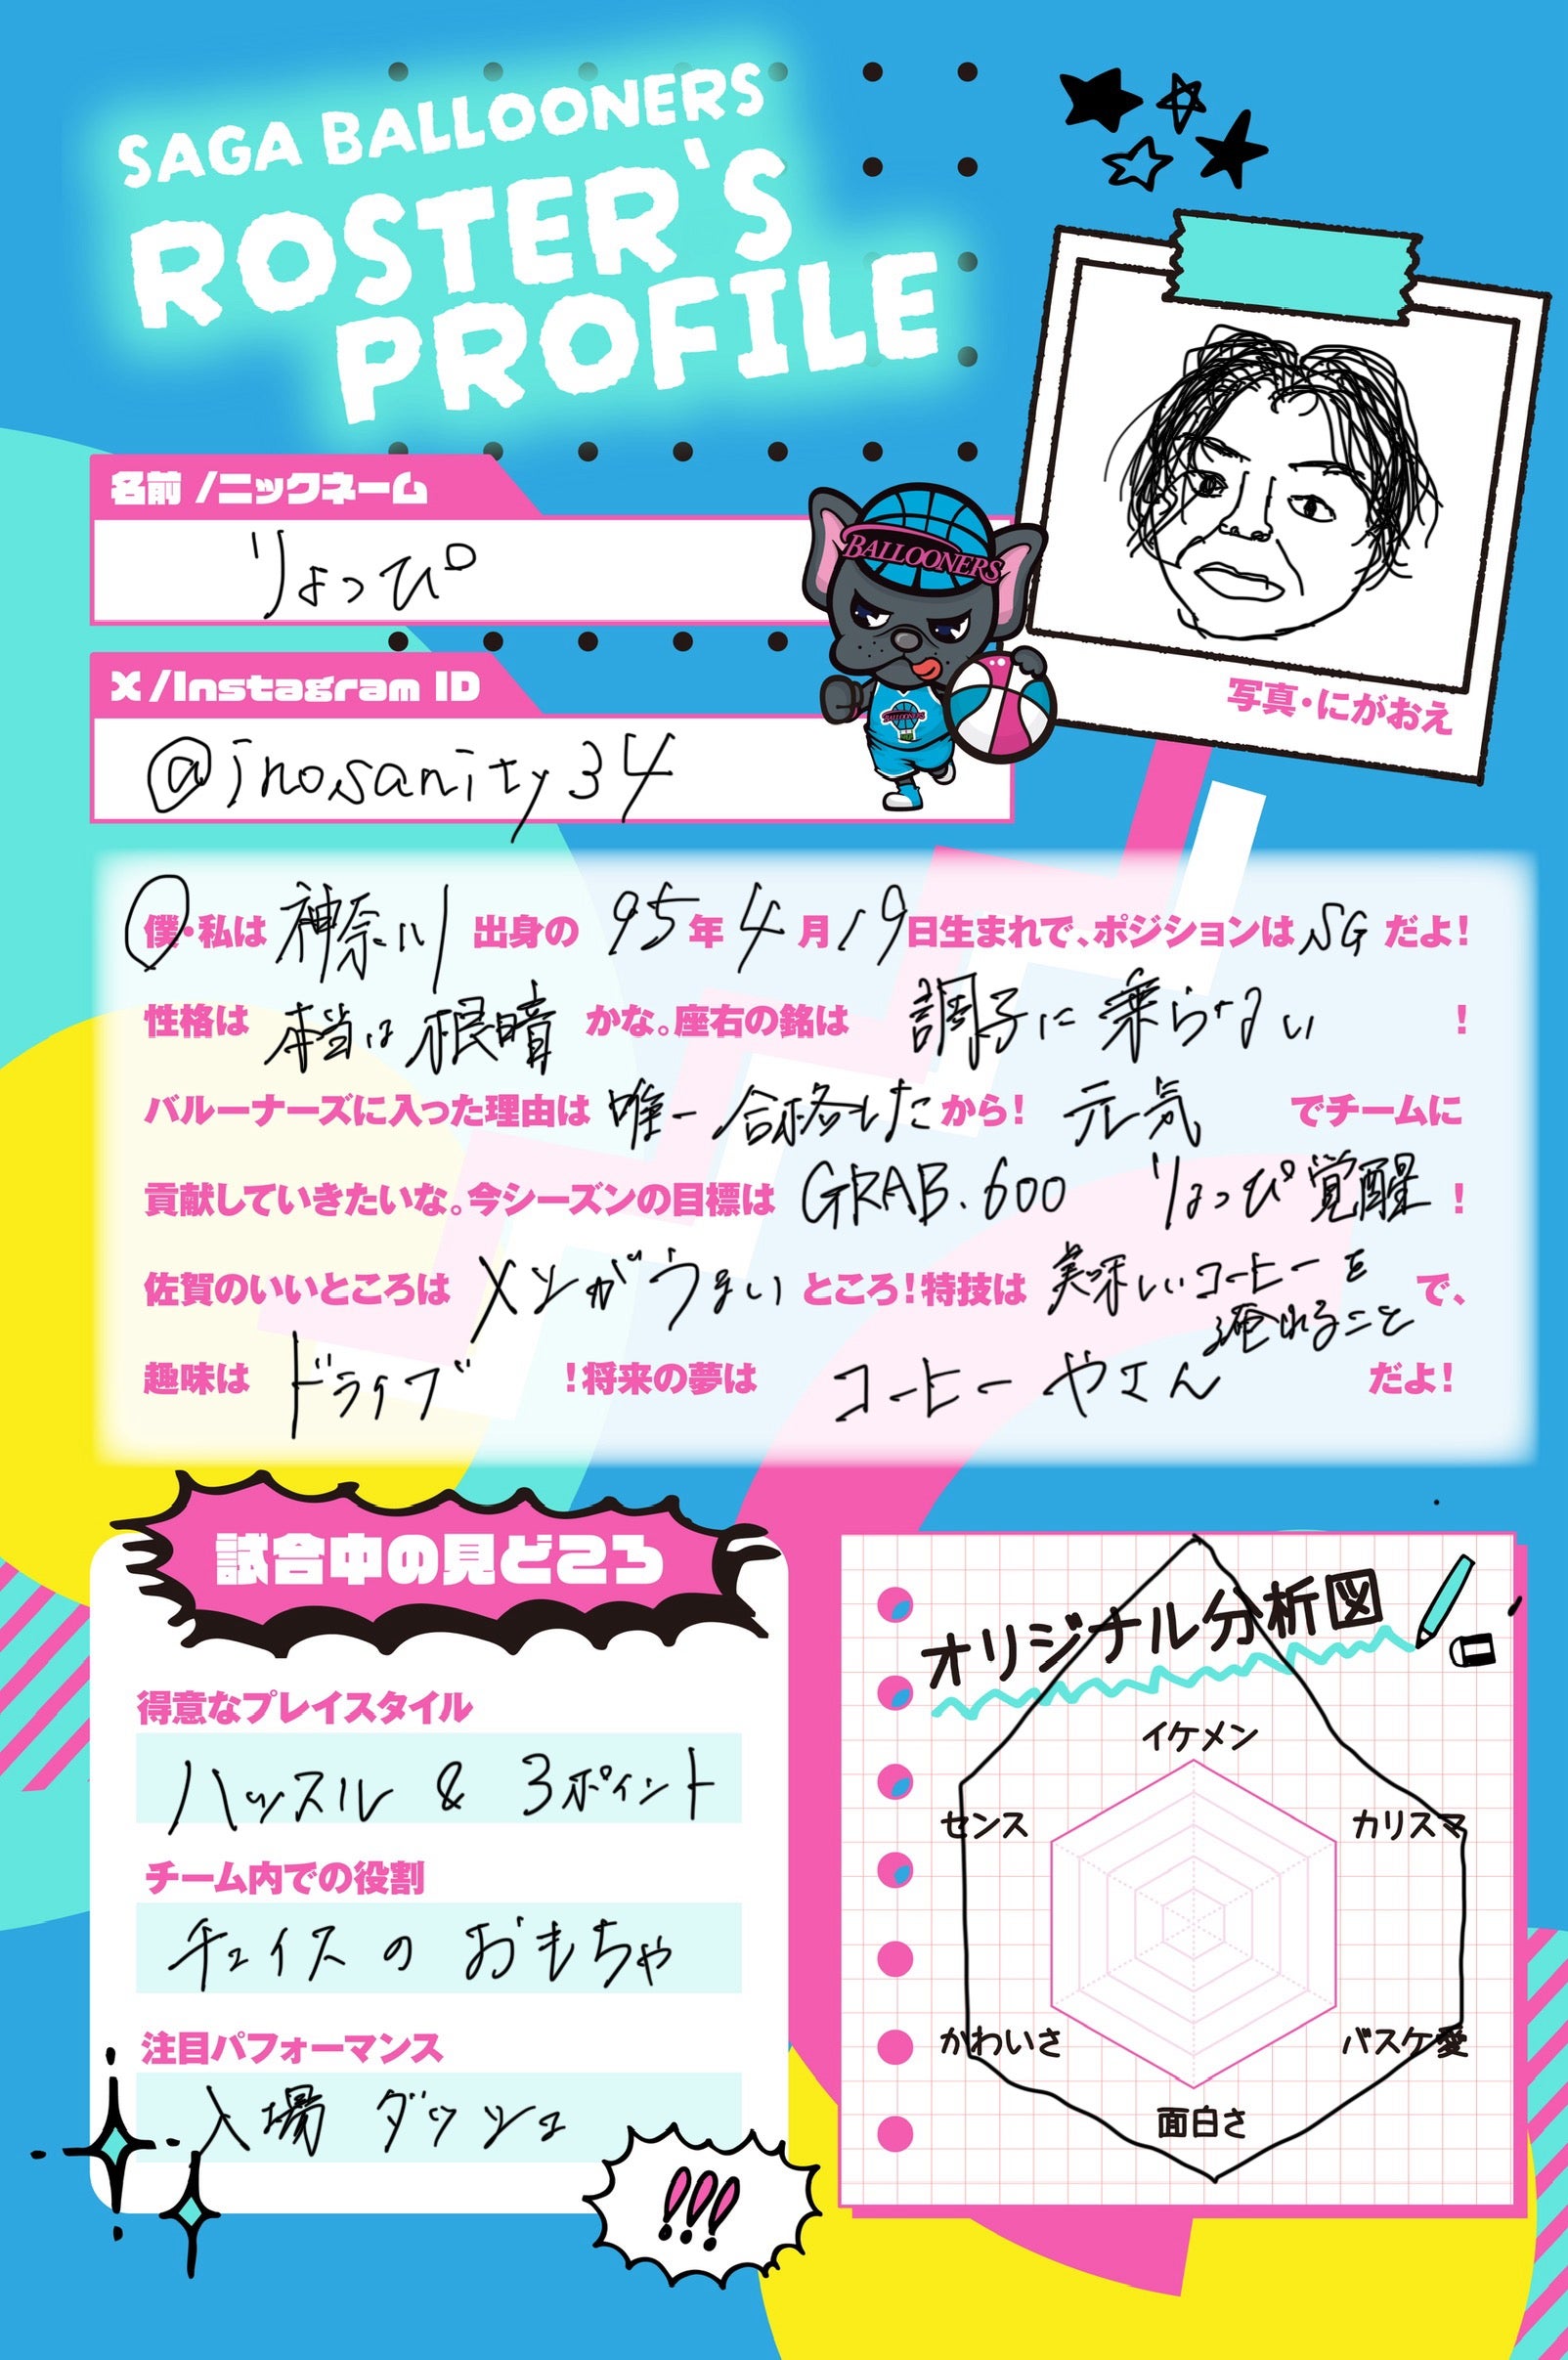 SAGA BALLOONERS
ROSTER'S
PROFILE
名前 /ニックネーム
りょっぴ
BALLOONERS
X /Instagram ID
@inosanity34
写真・にがおえ
僕・私は 神奈川 出身の 95年 4月 19日生まれで、ポジションは SG だよ!
性格は 本当は根暗 かな。座右の銘は 調子に乗らない !
バルーナーズに入った理由は 唯一合格した から! 元気 でチームに
貢献していきたいな。今シーズンの目標は GRAB.600 りょっぴ覚醒 !
佐賀のいいところは メシがうまい ところ!特技は 美味しいコーヒーを
淹れること で、
趣味は ドライブ !将来の夢は コーヒーやさん だよ!
試合中の見どころ
得意なプレイスタイル
ハッスル & 3ポイント
チーム内での役割
チェイスのおもちゃ
注目パフォーマンス
入場 ダッシュ
!!!
オリジナル分析図
イケメン
センス
カリスマ
かわいさ
バスケ愛
面白さ